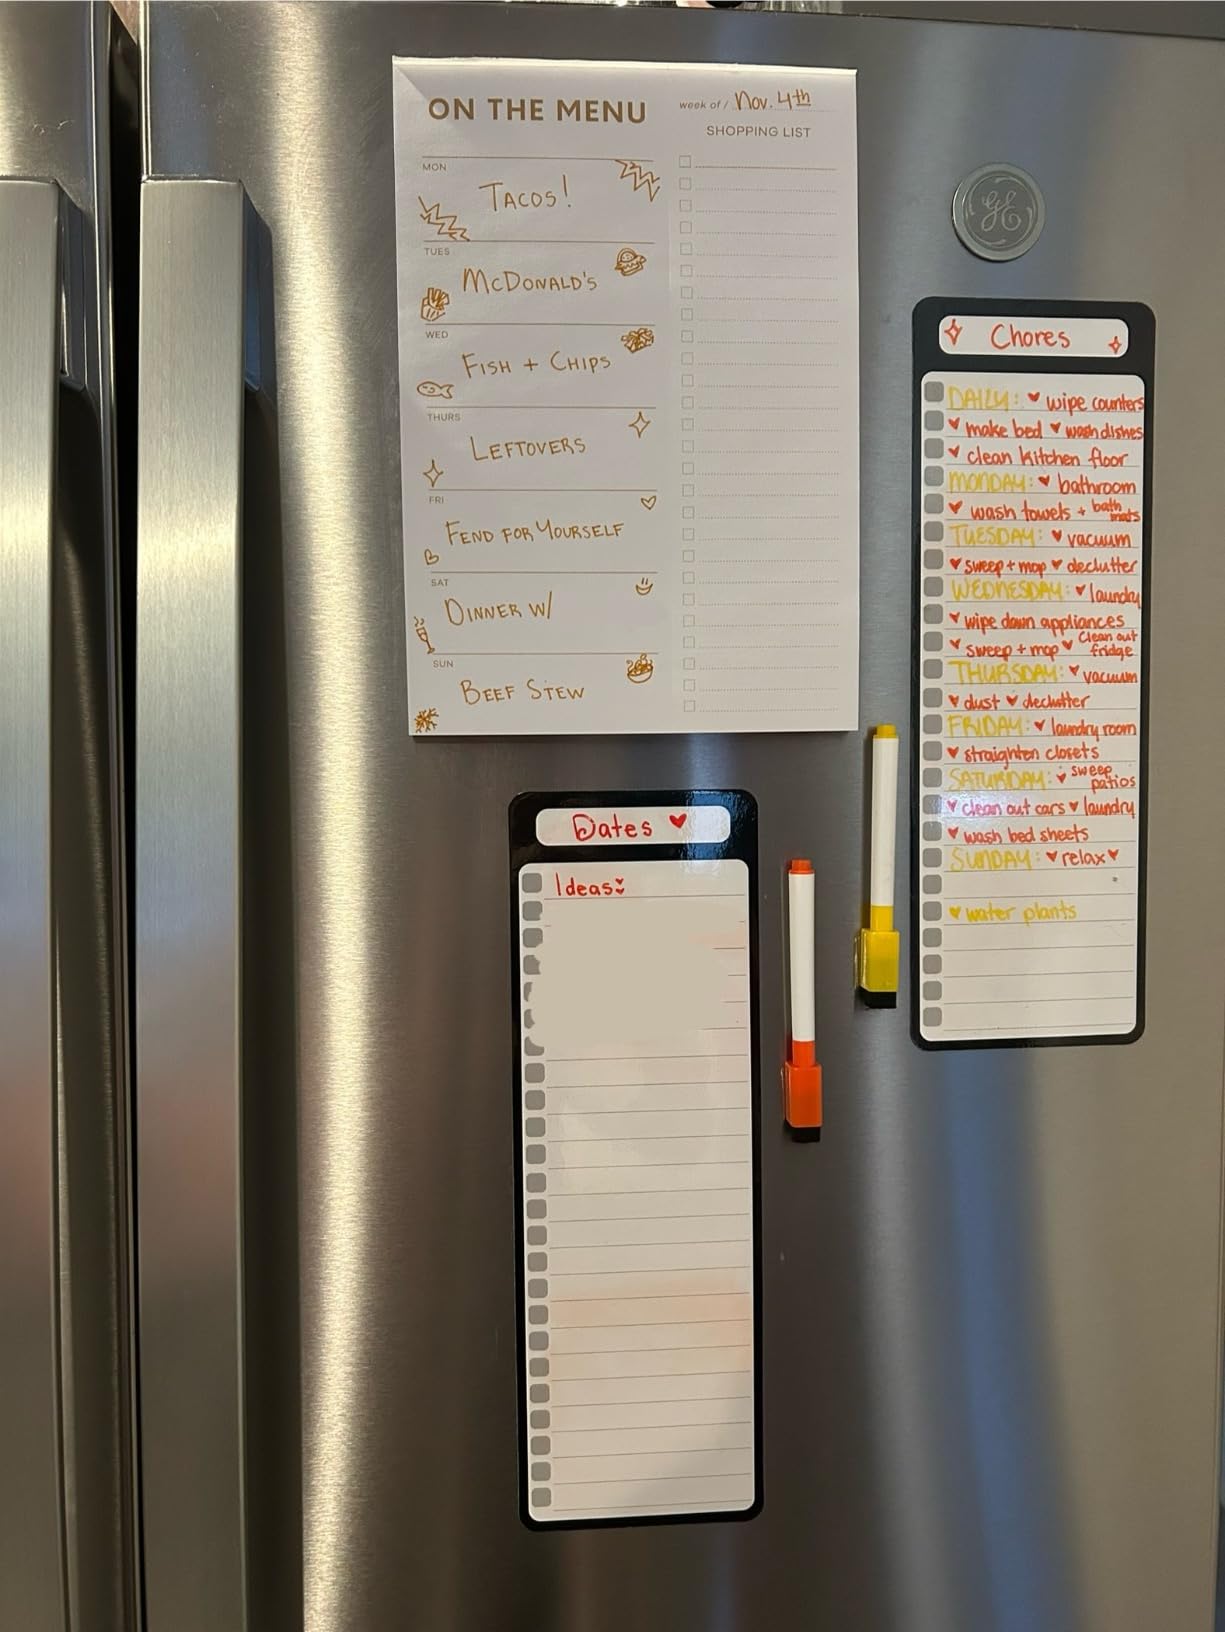 ON THE MENU
week of / Nov. 4th
SHOPPING LIST
MON
TACOS!
TUES
McDONALD'S
WED
FISH + CHIPS
THURS
LEFTOVERS
FRI
FEND FOR YOURSELF
SAT
DINNER W/
SUN
BEEF STEW
GE
Chores
DAILY: ♥ wipe counters
♥ make bed ♥ wash dishes
♥ clean kitchen floor
MONDAY: ♥ bathroom
♥ wash towels + bath mats
TUESDAY: ♥ vacuum
♥ sweep + mop ♥ declutter
WEDNESDAY: ♥ laundry
♥ wipe down appliances
♥ sweep + mop ♥ clean out fridge
THURSDAY: ♥ vacuum
♥ dust ♥ declutter
FRIDAY: ♥ laundry room
♥ straighten closets
SATURDAY: ♥ sweep patios
♥ clean out cars ♥ laundry
♥ wash bed sheets
SUNDAY: ♥ relax ♥
♥ water plants
Dates ♥
Ideas: